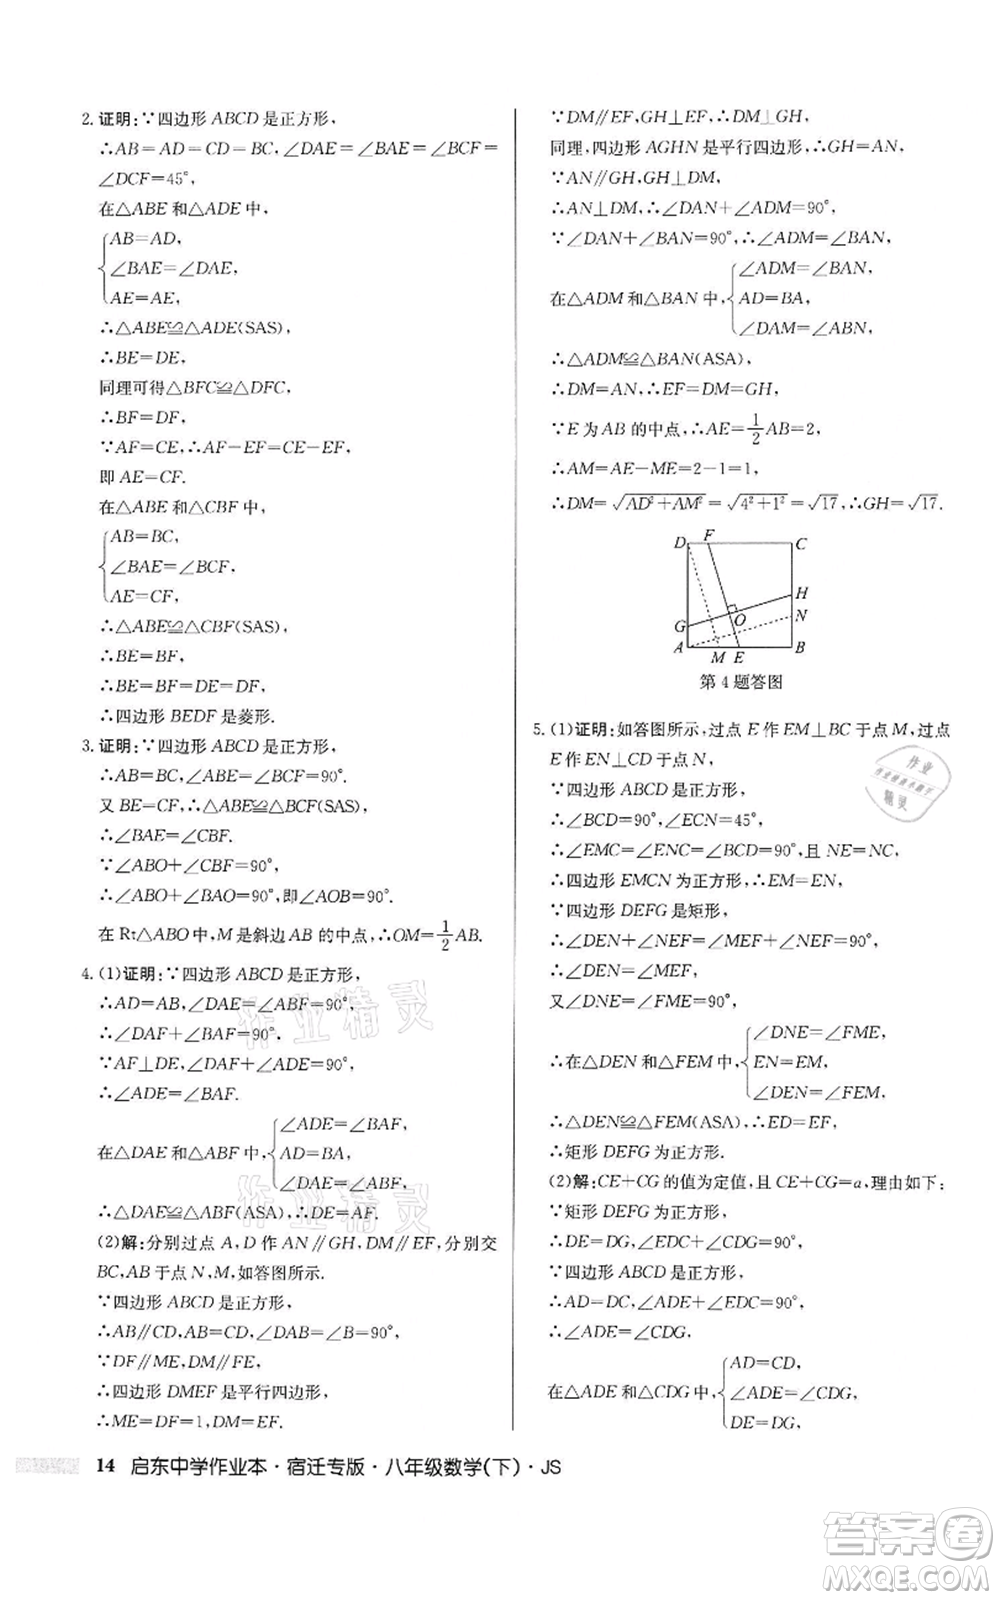 2. 证明:∵四边形 ABCD 是正方形,
∴AB=AD=CD=BC,∠DAE=∠BAE=∠BCF=
∠DCF=45°,
在△ABE 和△ADE 中,
AB=AD,
∠BAE=∠DAE,
AE=AE,
∴△ABE≌△ADE(SAS),
∴BE=DE,
同理可得△BFC≌△DFC,
∴BF=DF,
∵AF=CE,∴AF-EF=CE-EF,
即 AE=CF.
在△ABE 和△CBF 中,
AB=BC,
∠BAE=∠BCF,
AE=CF,
∴△ABE≌△CBF(SAS),
∴BE=BF,
∴BE=BF=DE=DF,
∴四边形 BEDF 是菱形.
3. 证明:∵四边形 ABCD 是正方形,
∴AB=BC,∠ABC=90°.
又 BE=CF,∴△ABE≌△BCF(SAS),
∴∠BAE=∠CBF.
∵∠ABO+∠CBF=90°,
∴∠ABO+∠BAO=90°,即∠AOB=90°.
在 Rt△ABO 中,M 是斜边 AB 的中点,∴OM=1/2 AB.
4. (1)证明:∵四边形 ABCD 是正方形,
∴AD=AB,∠DAE=∠ABF=90°,
∴∠DAF+∠BAF=90°.
∵AF⊥DE,∠DAF+∠ADE=90°,
∴∠ADE=∠BAF.
∠ADE=∠BAF,
在△DAE 和△ABF 中, DA=BA,
∠DAE=∠ABF,
∴△DAE≌△ABF(ASA),∴DE=AF.
(2)解:分别过点 A,D 作 AN∥GH,DM∥EF,分别交
BC,AB 于点 N,M,如答图所示.
∵四边形 ABCD 是正方形,
∴AB∥CD,AB=CD,∠DAB=∠B=90°,
∵DF∥ME,DM∥FE,
∴四边形 DMEF 是平行四边形,
∴ME=DF=1,DM=EF.
∵DM∥EF,GH⊥EF,∴DM⊥GH,
同理,四边形 AGHN 是平行四边形,∴GH=AN,
∵AN∥GH,GH⊥DM,
∴AN⊥DM,∴∠DAN+∠ADM=90°,
∵∠DAN+∠BAN=90°,∴∠ADM=∠BAN,
∠ADM=∠BAN,
在△ADM 和△BAN 中, AD=BA,
∠DAM=∠ABN,
∴△ADM≌△BAN(ASA),
∴DM=AN,∴EF=DM=GH,
∵E 为 AB 的中点,∴AE=1/2 AB=2,
∴AM=AE-ME=2-1=1,
∴DM=√(AD²+AM²)=√(4²+1²)=√17,∴GH=√17.
D F C
H
N
G O
A M E B
第 4 题答图
5. (1)证明:如答图所示,过点 E 作 EM⊥BC 于点 M,过点
E 作 EN⊥CD 于点 N,
∵四边形 ABCD 是正方形,
∴∠BCD=90°,∠ECN=45°,
∴∠EMC=∠ENC=∠BCD=90°,且 NE=NC,
∴四边形 EMCN 为正方形,∴EM=EN,
∵四边形 DEFG 是矩形,
∴∠DEN+∠NEF=∠MEF+∠NEF=90°,
∴∠DEN=∠MEF,
又∠DNE=∠FME=90°,
∠DNE=∠FME,
∴在△DEN 和△FEM 中, EN=EM,
∠DEN=∠FEM,
∴△DEN≌△FEM(ASA),∴ED=EF,
∴矩形 DEFG 为正方形.
(2)解:CE+CG 的值为定值,且 CE+CG=a,理由如下:
∵矩形 DEFG 为正方形,
∴DE=DG,∠EDC+∠CDG=90°,
∵四边形 ABCD 是正方形,
∴AD=DC,∠ADE+∠EDC=90°,
∴∠ADE=∠CDG,
AD=CD,
在△ADE 和△CDG 中, ∠ADE=∠CDG,
DE=DG,
14 启东中学作业本·宿迁专版·八年级数学(下)·JS
作业精灵
作业精灵
作业
精灵
答案卷
MXQE.COM